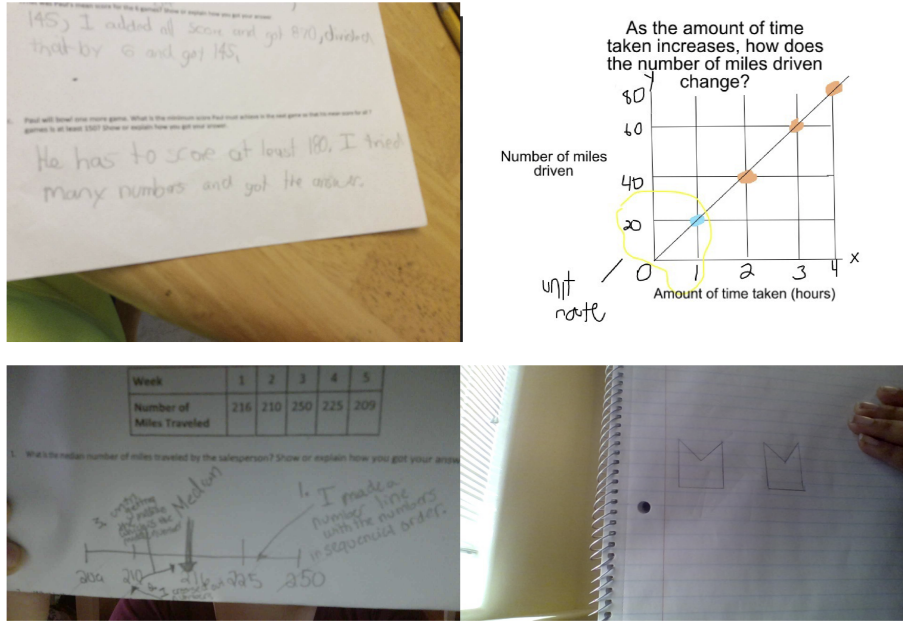 145, I added all score and got 870, divided
that by 6 and got 145.
Paul will bowl one more game. What is the minimum score Paul must achieve in the next game so that his mean score for all 7
games is at least 150? Show or explain how you got your answer.
He has to score at least 180. I tried
many numbers and got the answer.
As the amount of time
taken increases, how does
the number of miles driven
change?
y
80
60
40
20
0
1
2
3
4
x
Number of miles
driven
Amount of time taken (hours)
unit
rate
Week 1 2 3 4 5
Number of Miles Traveled 216 210 250 225 209
What is the median number of miles traveled by the salesperson? Show or explain how you got your answ
Median
1. I made a
number line
with the numbers
in sequencial order.
209 210 216 225 250